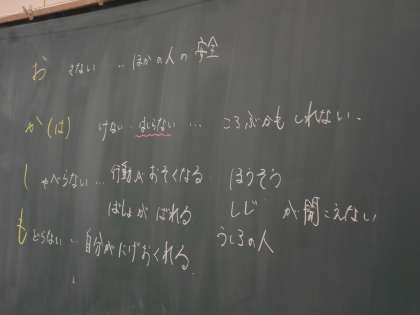 おさない‥ほかの人の安全
か(は)けない‥はしらない… ころぶかもしれない.
しゃべらない…行動がおそくなる ほうそう
ばしょがばれる しじ が聞こえない
もどらない‥自分がにげおくれる うしろの人